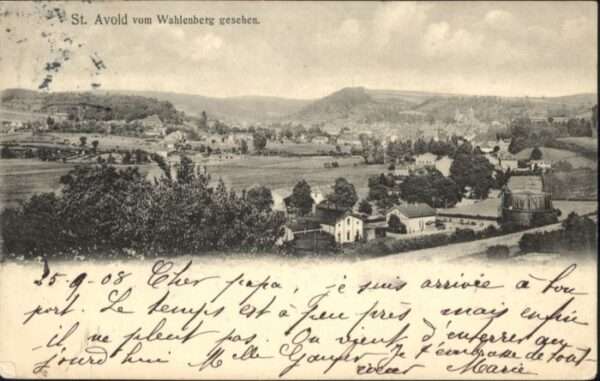 St. Avold vom Wahlenberg gesehen.
25-9-08 Cher papa, je suis arrivée à bon
port. Le temps est à peu près mais enfin
il ne pleut pas. On vient d'enterrer au
jourd'hui Melle Je t'embrasse de tout
cœur Marie